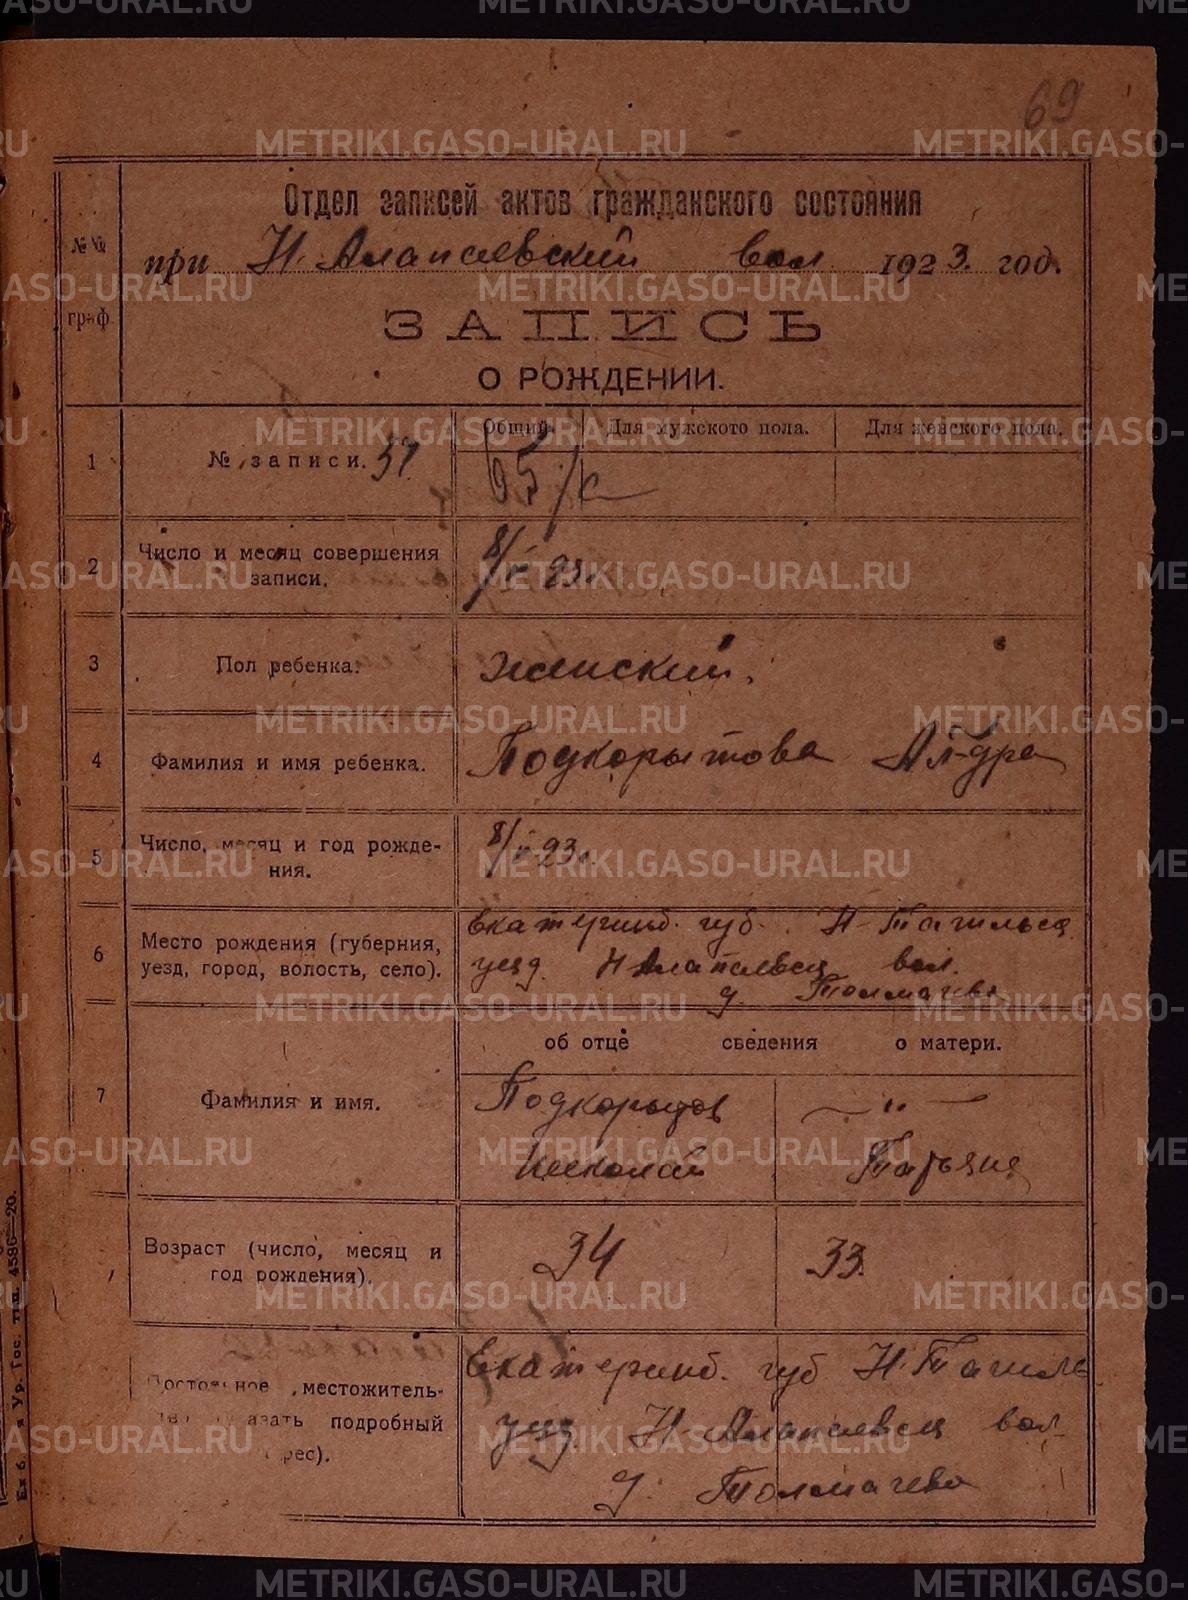 69
Отдел записей актов гражданского состояния
№№ граф.
при Н. Алапаевский вол. 1923. год.
ЗАПИСЬ
О РОЖДЕНИИ.
1 № записи. 57. Общий Для мужского пола. Для женского пола.
65/к
2 Число и месяц совершения записи. 8/V 23г.
3 Пол ребенка. женский.
4 Фамилия и имя ребенка. Подкорытова Ал-дра
5 Число, месяц и год рождения. 8/V-23г.
6 Место рождения (губерния, уезд, город, волость, село).
Екатеринб. губ. Н-Тагильск
уезд. Н Алапаевск вол.
д. Толмачева
об отце сведения о матери.
7 Фамилия и имя.
Подкорытов —"—
Николай Татьяна
Возраст (число, месяц и год рождения). 34 33.
Постоянное местожительство (указать подробный адрес).
Екатеринб. губ Н. Тагиль
уезд Н-Алапаевск вол-
д. Толмачева
Ур. Гос. тип. 4586—20.
METRIKI.GASO-URAL.RU